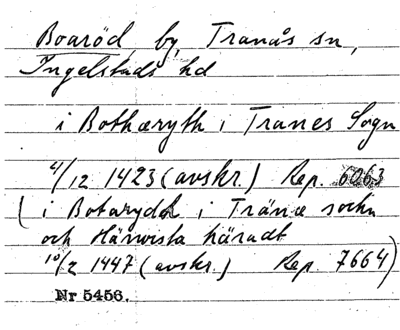 Boaröd, by, Tranås sn,
Ingelstads hd
i Bothæryth i Tranes Sogn
4/12 1423 (avskr.) Rep. 6063
(i Botarydh i Tränæ sockn
och Härwista häradt
10/2 1447 (avskr.) Rep. 7664)
Nr 5456.